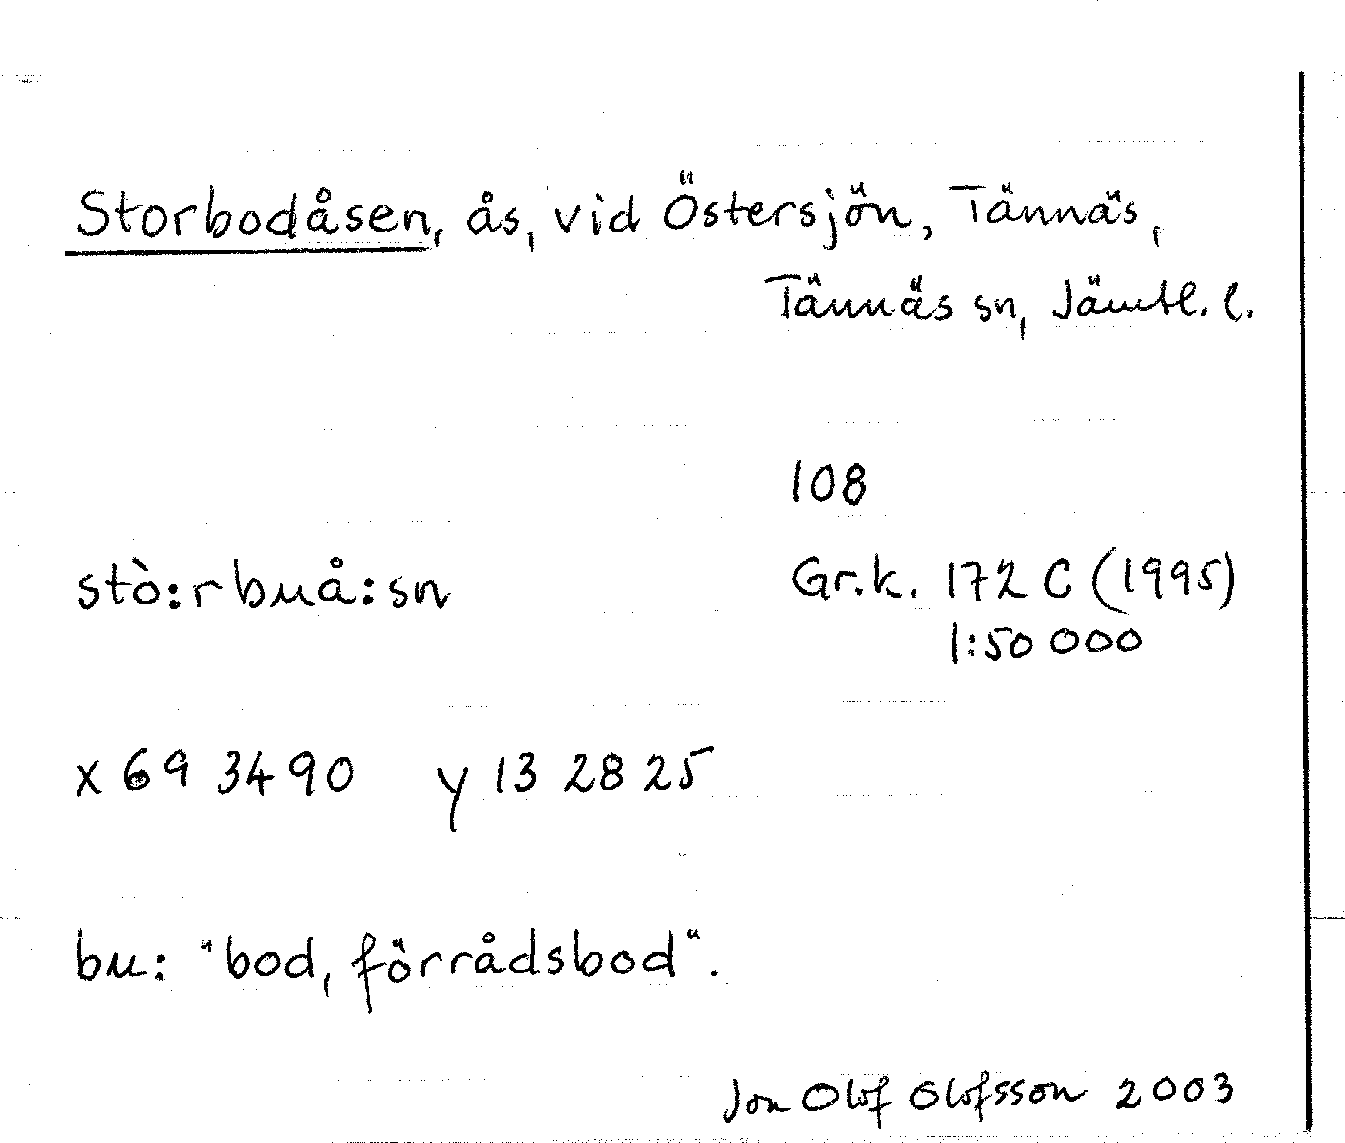 Storbodåsen, ås, vid Östersjön, Tännäs,
Tännäs sn, Jämtl. l.
108
stò:rbuå:sn
Gr.k. 172 C (1995)
1:50 000
x 69 3490 y 13 2825
bu: "bod, förrådsbod".
Jon Olof Olofsson 2003